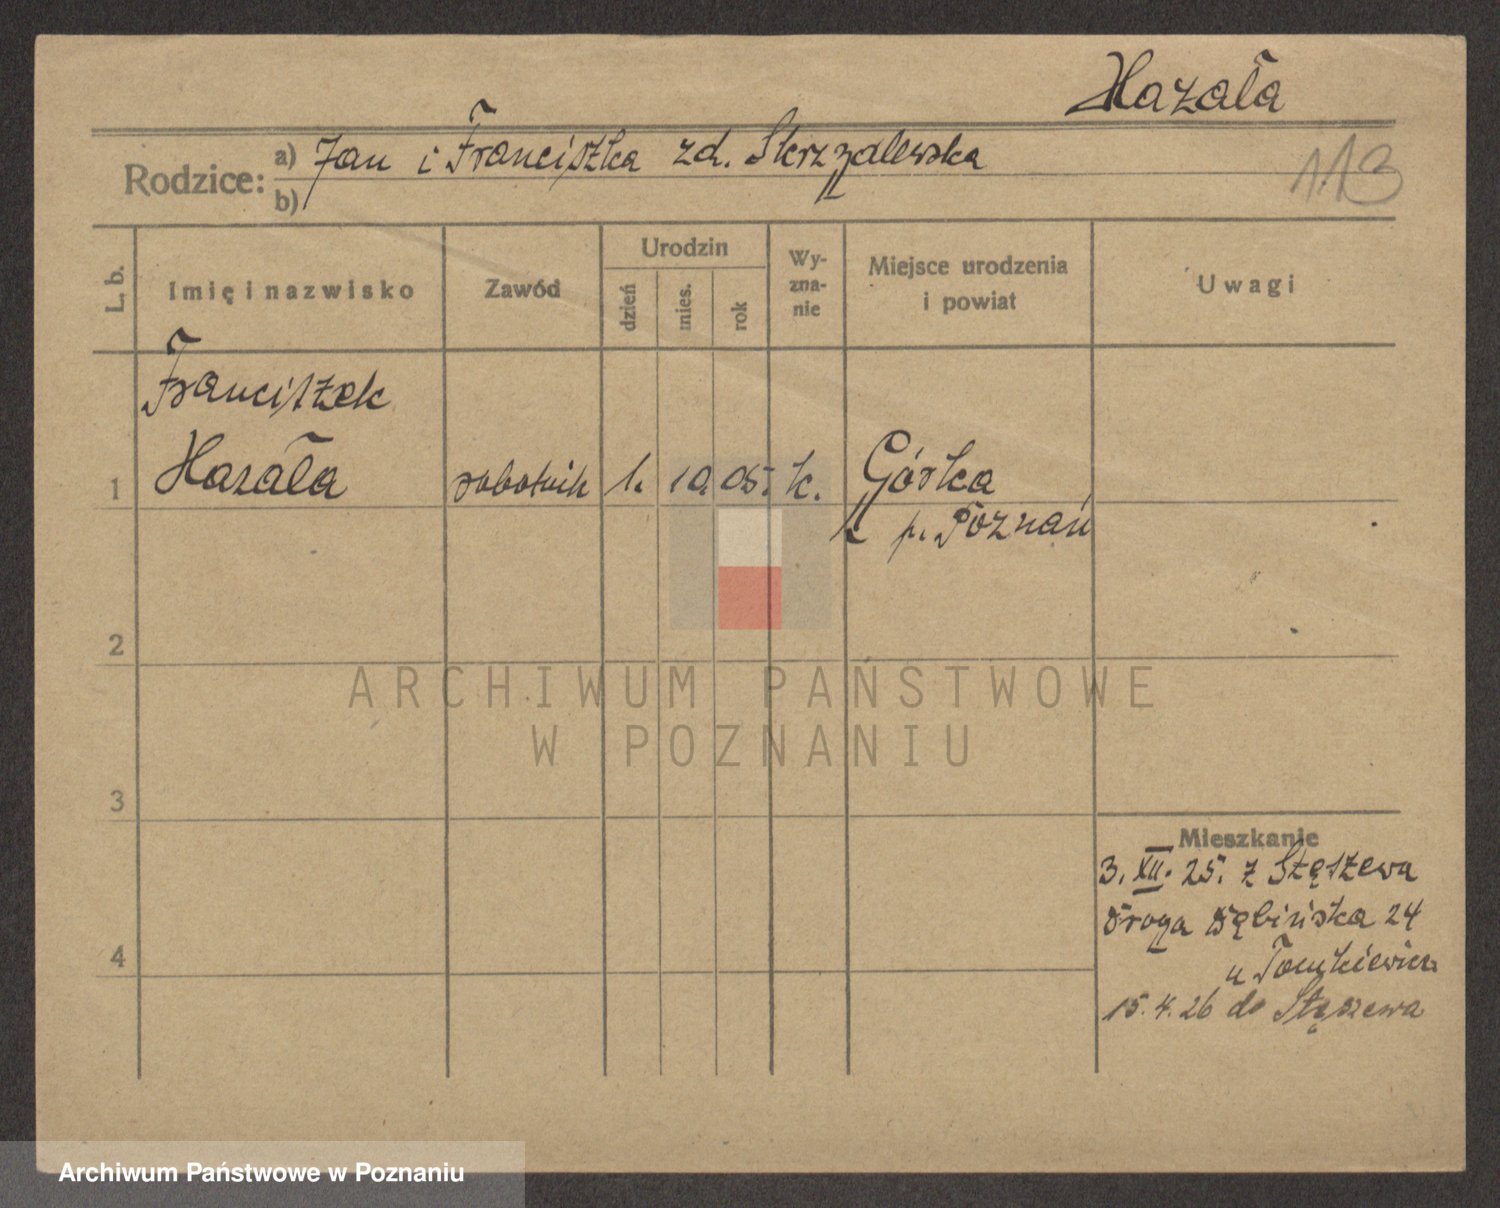 Hazała
Rodzice: a) Jan i Franciszka zd. Skrzypalewska
b)
113
L. b.
Imię i nazwisko
Zawód
Urodzin
dzień
mies.
rok
Wy-
zna-
nie
Miejsce urodzenia
i powiat
Uwagi
Franciszek
1 Hazała robotnik 1. 10 05. k. Górka
p. Poznań
2
3
4
Mieszkanie
3. XII. 25. z Stęszewa
Droga Dębińska 24
u
15. 4. 26 do Stęszewa
ARCHIWUM PAŃSTWOWE
W POZNANIU
Archiwum Państwowe w Poznaniu